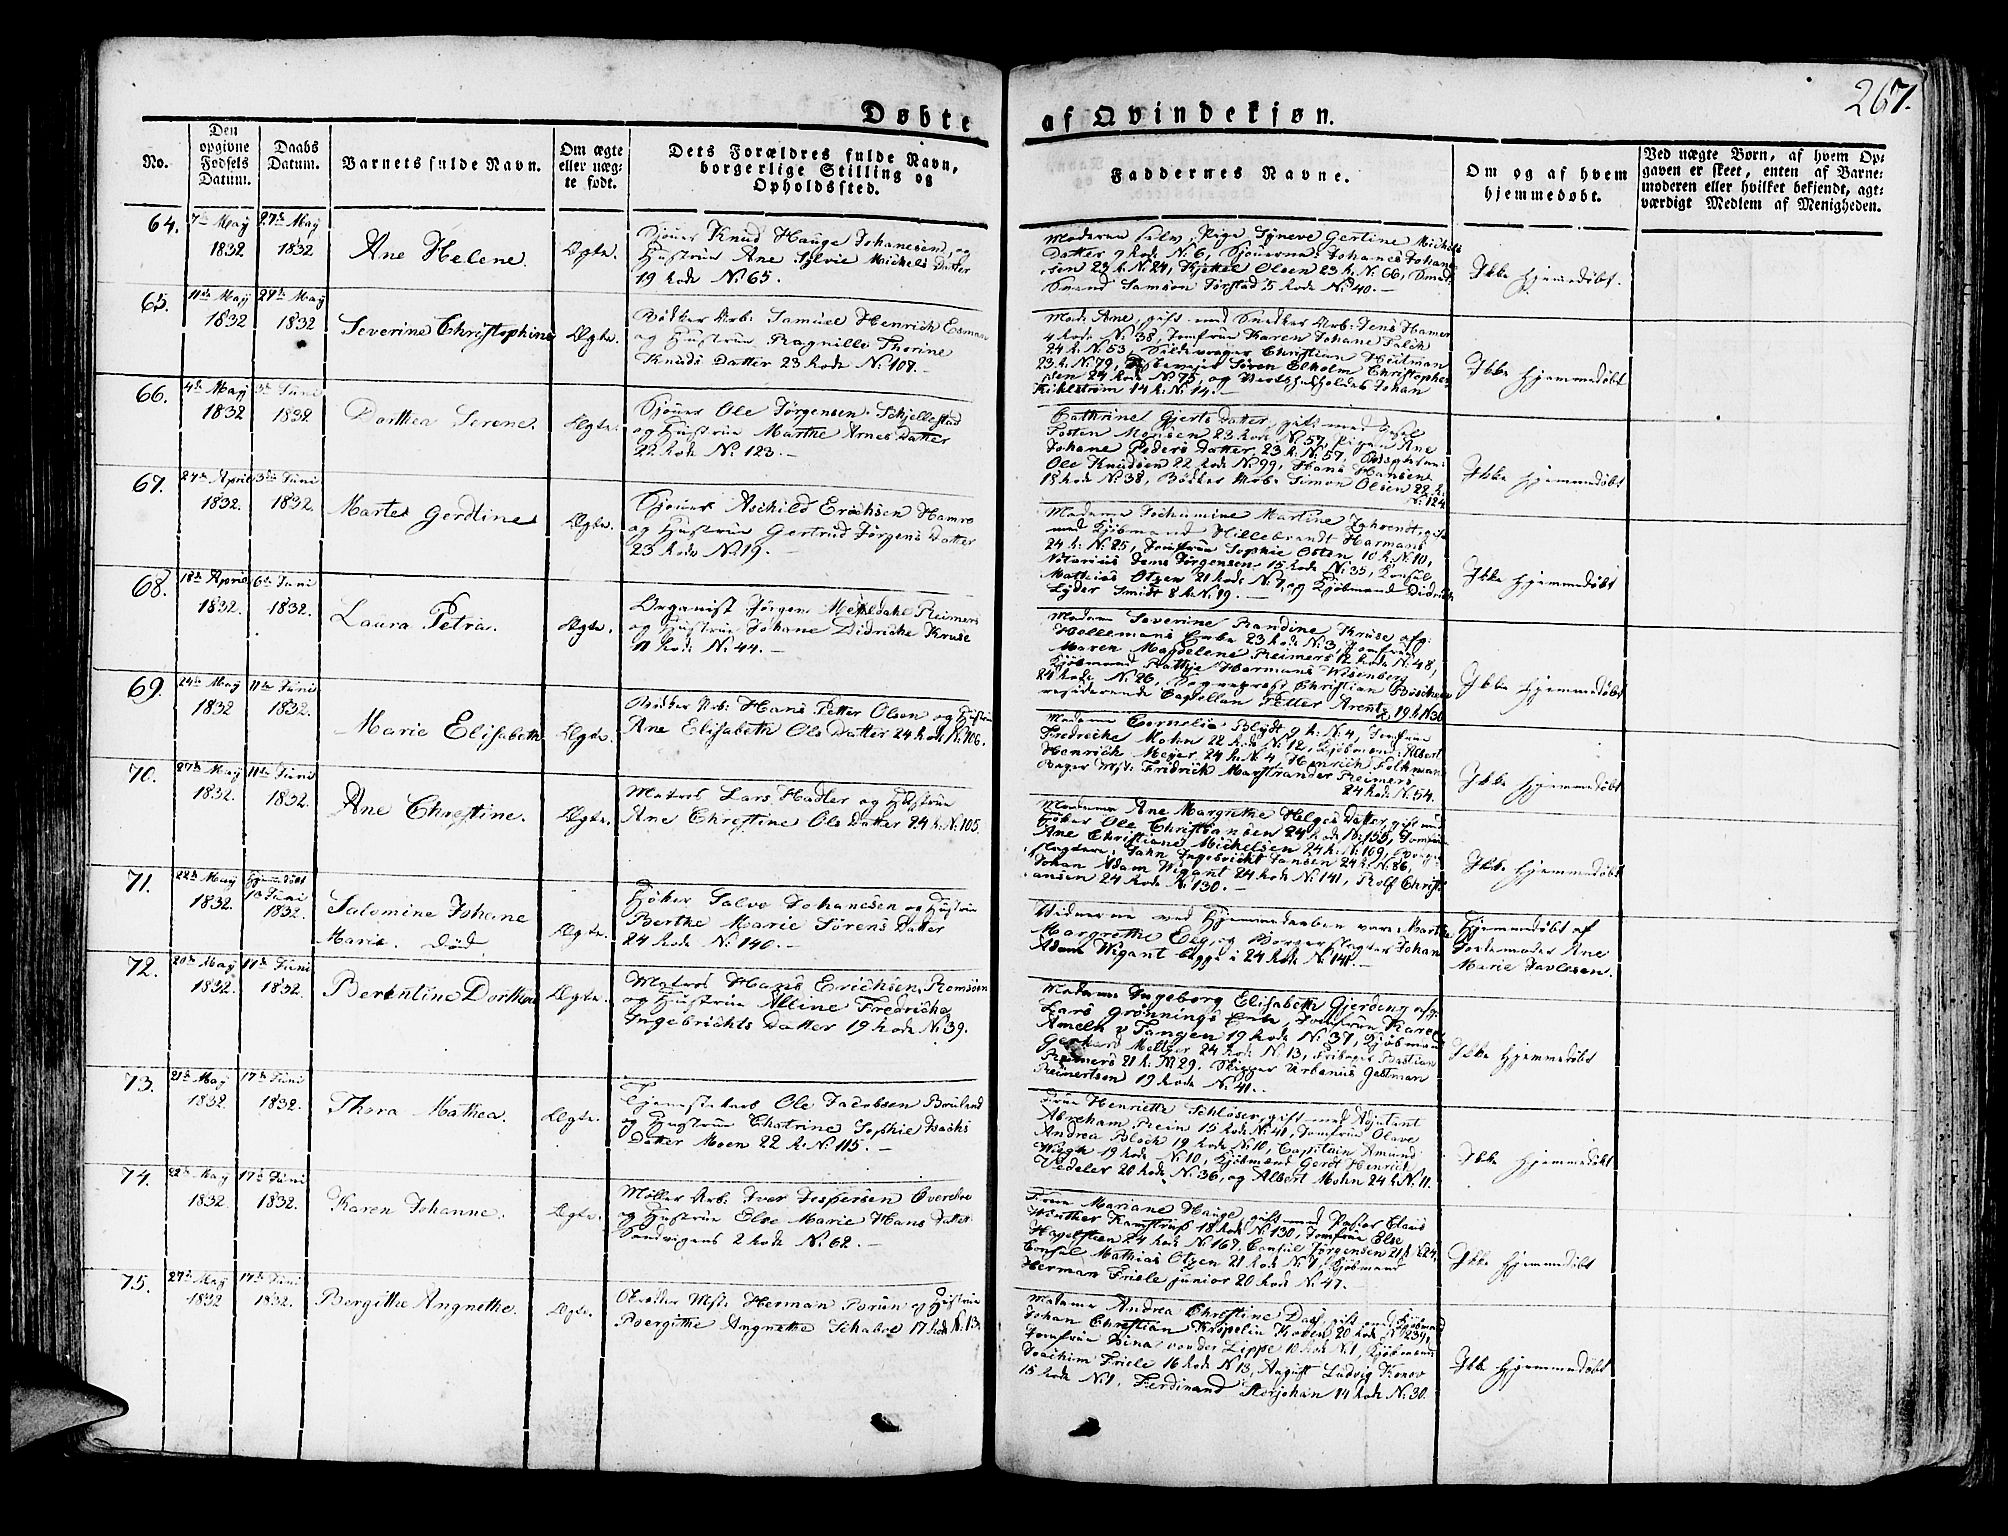 267.
Døbte af Qvindekjøn.
No.
Den opgivne Fødsels Datum.
Daabs Datum.
Barnets fulde Navn.
Om ægte eller uægte født.
Dets Forældres fulde Navn, borgerlige Stilling og Opholdssted.
Faddernes Navne.
Om og af hvem hjemmedøbt.
Ved uægte Børn, af hvem Opgaven er skeet, enten af Barnemoderen eller hvilket bekjendt, agtværdigt Medlem af Menigheden.
64.
7de May 1832
27de May 1832
Ane Helene.
Ægte.
Sjouer Knud Hauge Johanesen, og
Hustrue Ane Sylvie Michels Datter
19 Rode N. 65.
Moderen selv, Pige Synneve Gertine Michels
Datter 9 Rode N. 6, Sjouerne Johanes Johane
sen 23 R. N. 24, Kjettel Olsen 23 R. N. 66,
Svend Samson Førstad 5 Rode N. 40.
Ikke hjemmedøbt.
65.
11te May 1832
29de May 1832
Severine Christophine
Ægte.
Bødker Arb: Samuel Henrich Esman
og Hustrue Ragnille Thorine
Knuds Datter 23 Rode N. 107.
Mad: Ane, gift med Snedker Arb: Jens Hamer
4 Rode N. 38, Jomfrue Karen Johane Falck
24 R. N. 53, Christian Heitman
23 R. N. 79, Søren Elholm Christopher
sen 24 Rode N. 75, og Johan
Kihlstrøm 14 R. N. 14.
Ikke hjemmedøbt
66.
4de May 1832
3de Juni 1832
Dorthea Serene.
Ægte.
Sjouer Ole Jørgensen Schjellestad
og Hustrue Marthe Arnes Datter
22 Rode N. 123.
Cathrine Gjerts Datter, gift med
Tosten Monsen 23 Rode N. 57, Pigen Ane
Johane Peders Datter 23 R. N. 57,
Ole Knudsen 22 Rode N. 99, Hans Hansen
18 Rode N. 38, Bødker Arb: Simon Olsen 22 R.
N. 124
Ikke hjemmedøbt
67.
24de April 1832.
3de Juni 1832.
Marte Gerdtine
Ægte.
Sjouer Aschild Erichsen Hamre
og Hustrue Gertrud Jørgens Datter
23 Rode N. 19.
Madame Jochumine Martine gift
med Kjøbmand Hillebrandt Harmans
24 R. N. 25, Jomfrue Sophie Osten 10 R. N. 10,
Notarius Jens Jørgensen 15 Rode N. 35, Consul
Mathias Otzen 21 Rode N. 7 og Kjøbmand Didrich
Lyder Smidt 8 R. N. 19.
Ikke hjemmedøbt
68.
18de April 1832.
6te Juni 1832.
Laura Petra.
Ægte.
Organist Jørgen Meheldahl Reimers
og Hustrue Johane Didricke Kruse
11 Rode N. 44.
Madam Severine Randine Kruse afg:
Hollemans Enke 23 Rode N. 3, Jomfrue
Maren Magdelene Reimers 12 Rode N. 48,
Kjøbmand Rathje Harmans Wesenberg
24 Rode N. 26, Sogneprest Christian
residerende Capellan Petter Arentz 19 R. N. 30
Ikke hjemmedøbt
69.
24de May 1832
11te Juni 1832.
Marie Elisabeth
Ægte.
Bødker Arb: Hans Petter Olsen og Hustrue
Ane Elisabeth Ols Datter 24 Rode N. 106.
Madame Cornelia Blydt 9 R. N. 4, Jomfrue
Fredricke Mohn 22 Rode N. 12, Kjøbmend: Albert
Henrich Meyer 24 R. N. 4, Henrich Folkman
Bager Mst: Fridrich Marstrander Reimers
24 Rode N. 54.
Ikke hjemmedøbt
70.
27de May 1832.
11te Juni 1832.
Ane Christine.
Ægte.
Matros Lars Hadler og Hustrue
Ane Christine Ols Datter 24 R. N. 105.
Madame Ane Margrethe Helges Datter, gift med
Høker Ole Christiansen 24 Rode N. 155, Jomfrue
Ane Christiane Michelsen 24 R. N. 109,
Jahn Ingebricht Jansen 24 R. N. 86,
Johan Adam Wigant 24 Rode N. 141, Rolf Christi
ansen 24 Rode N. 130.
Ikke hjemmedøbt
71.
22de May 1832.
Hjemmedøbt 10 Juni 1832.
Salomine Johane
Marie. Død
Ægte.
Høker Salve Johanesen og Hustrue
Berthe Marie Sørens Datter
24 Rode N. 140.
Vidnerne ved Hjemmedaaben vare: Marthe
Margrethe Johan
Adam Wigant begge i 24 Rode N. 141.
Hjemmedøbt af
Jordemoder Ane
Marie Pavelsen.
72.
20de May 1832.
17de Juni 1832.
Berentine Dorthea
Ægte.
Matros Hans Erichsen Remsøen
og Hustrue Altine Fredricke
Ingebrichts Datter 19 Rode N. 39.
Madame Ingeborg Elisabeth Gjerding afg:
Lars Grønnings Enke, Jomfrue Karen
Ameln v Tangen 19 Rode N. 37, Kjøbmand
Gerhard Meltzer 24 Rode N. 13, Bastian
Reimers 21 R. N. 29, Skipper Urbanus Gestman
Reinertsen 19 Rode N. 41.
Ikke hjemmedøbt
73.
21de May 1832.
17de Juni 1832.
Thora Mathea.
Ægte.
Ole Jacobsen
og Hustrue Chatrine Sophie Isachs
Datter Moen 22 R. N. 115.
Frue Henriette Schløser, gift med Adjutant
Abraham Rein 15 Rode N. 41, Jomfrue Olave
Andrea Block 19 Rode N. 10, Capitain Amund
19 Rode N. 10, Kjøbmænd Gerdt Henrich
Vedeler 20 Rode N. 36, og Albert Mohn 24 R. N. 11.
Ikke hjemmedøbt
74.
22de May 1832.
17de Juni 1832.
Karen Johanne.
Ægte.
Møller Arb: Iver Jespersen Øvrebø
og Hustrue Else Marie Hans Datter
Sandvigens 2 Rode N. 62.
Frue Mariane Hauge, gift med Pastor Claus
Winther 18 Rode N. 130, Jomfrue Else
24 Rode N. 167, Consul Jørgensen 21 R.
Consul Mathias Otzen 21 Rode N. 7, Kjøbmand
Herman Friele junior 20 Rode N. 47.
Ikke hjemmedøbt
75.
27de May 1832
17de Juni 1832.
Bergitte Angnethe.
Ægte.
Mst: Herman Brun og Hustrue
Bergithe Angnethe Schabos 17 Rode N. 13.
Madame Andrea Christine Dass, gift med Kjøbmand
Johan Christian Krøpelin Koren 20 Rode N. 234,
Jomfrue Sina von der Lippe 10 Rode N. 1, Kjøbmænd:
Joachim Friele 16 Rode N. 13, August Ludvig Konow
15 Rode N. 1, Ferdinand Storjohan 14 Rode N. 30.
Ikke hjemmedøbt